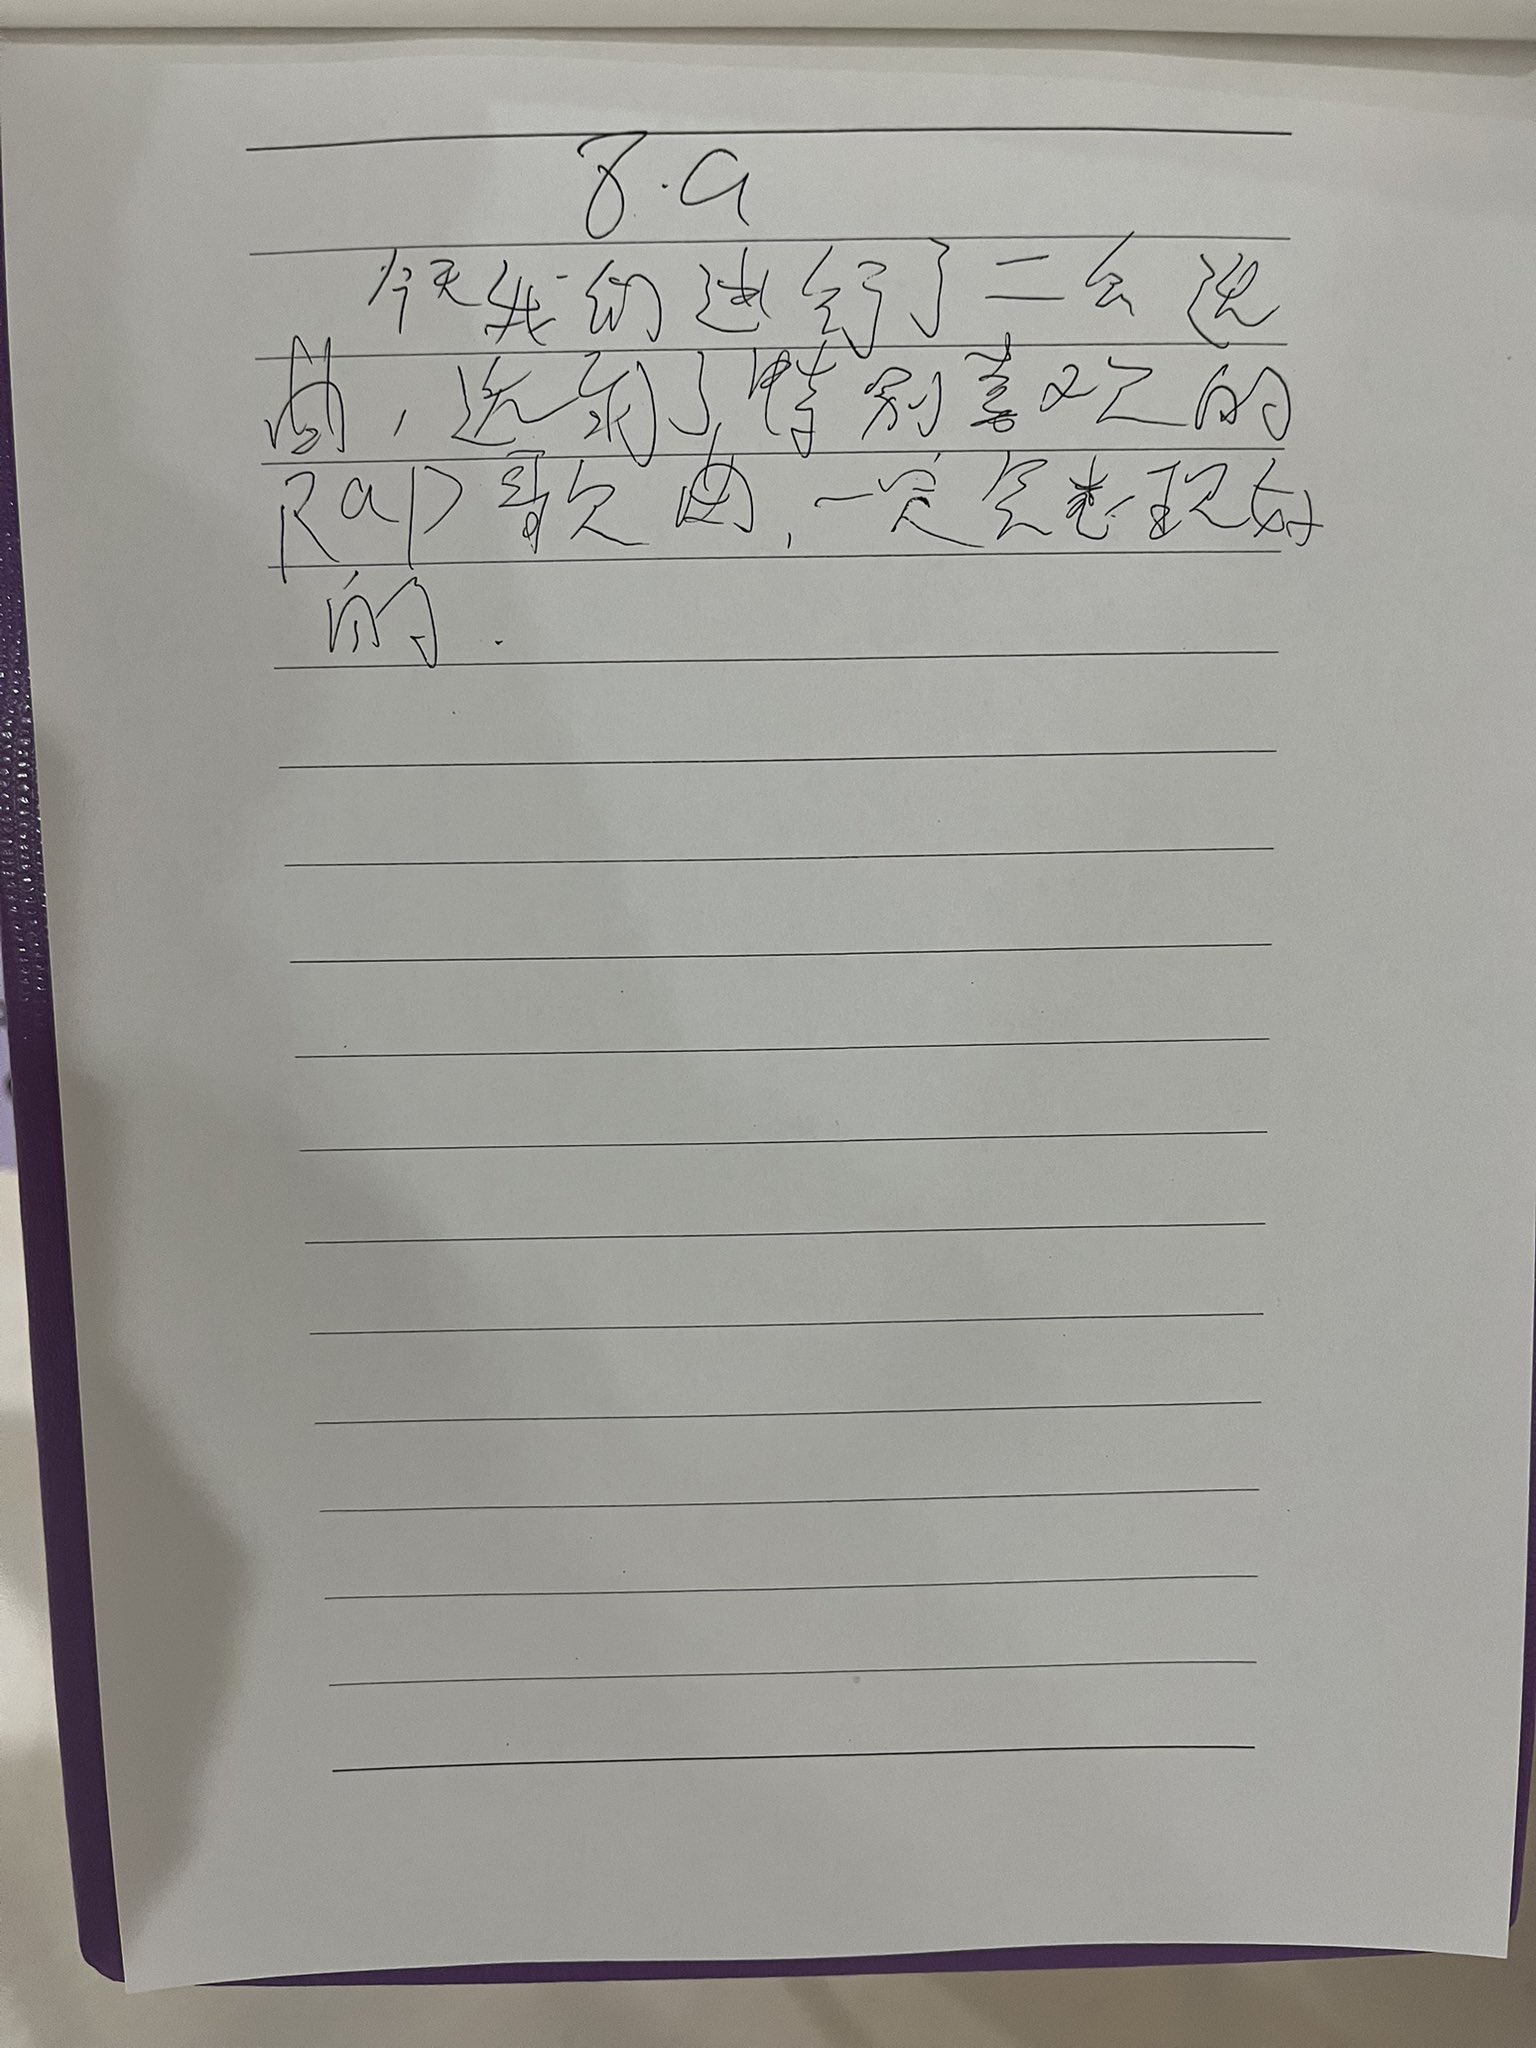 8.9
今天我们进行了二公选
曲,选到了特别喜欢的
Rap歌曲,一定会表现好
的.